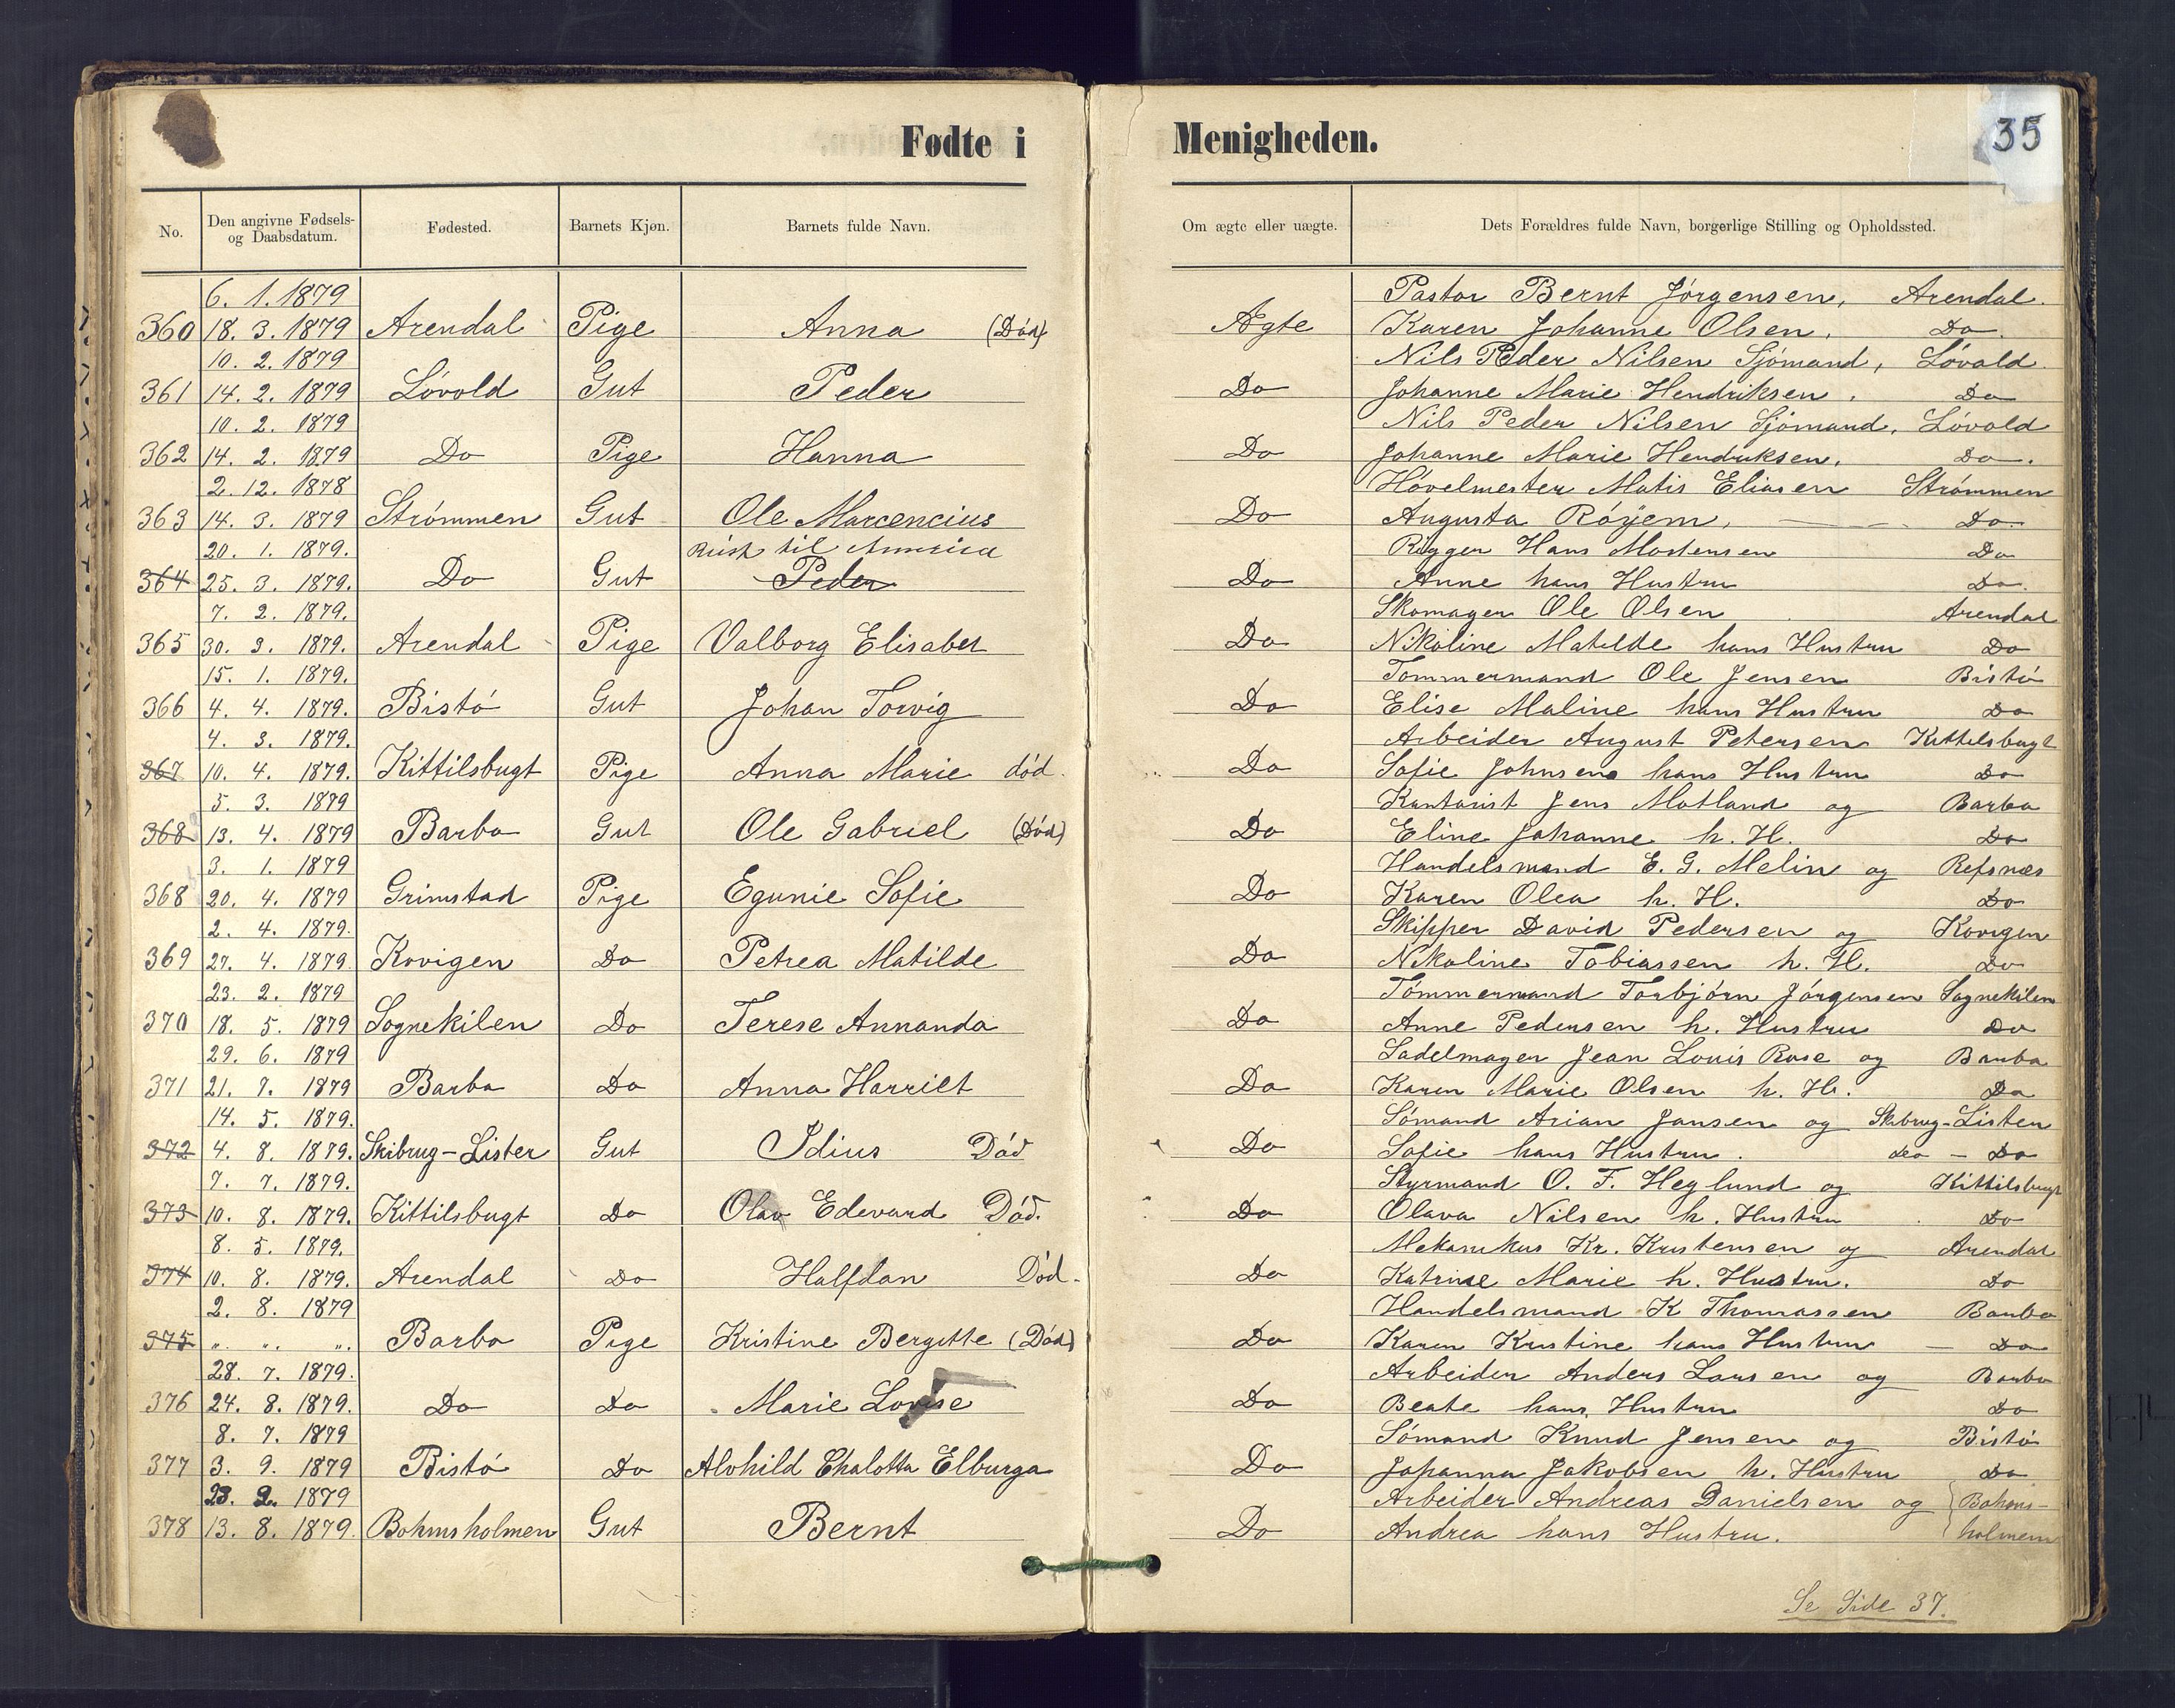 Fødte i Menigheden.
35
No. | Den angivne Fødsels- og Daabsdatum. | Fødested. | Barnets Kjøn. | Barnets fulde Navn. | Om ægte eller uægte. | Dets Forældres fulde Navn, borgerlige Stilling og Opholdssted.
6. 1. 1879 | Pastor Bernt Jórgensen, Arendal.
360 | 18. 3. 1879 | Arendal | Pige | Anna (Død) | Ægte | Karen Johanne Olsen, Do.
10. 2. 1879 | Nils Peder Nilsen Sjómand, Lóvold.
361 | 14. 2. 1879 | Lóvold | Gut | Peder | Do | Johanne Marie Hendriksen, Do
10. 2. 1879 | Nils Peder Nilsen Sjómand, Lóvold
362 | 14. 2. 1879 | Do | Pige | Hanna | Do | Johanne Marie Hendriksen, Do.
2. 12. 1878 | Hóvelmester Matis Eliasen Strómmen
363 | 14. 3. 1879 | Strómmen | Gut | Ole Marcencius | Do | Augusta Róyem, Do.
20. 1. 1879. | Reist til Amerika | Rigger Hans Mortensen Do
364 | 25. 3. 1879. | Do | Gut | Peder | Do | Anne hans Hustru Do.
7. 2. 1879. | Skomager Ole Olsen Arendal
365 | 30. 3. 1879. | Arendal | Pige | Valborg Elisabet | Do | Nikoline Matilde hans Hustru Do
15. 1. 1879. | Tómmermand Ole Jensen Bistó
366 | 4. 4. 1879. | Bistó | Gut | Johan Torvig | Do | Elise Maline hans Hustru Do
4. 3. 1879. | Arbeider August Petersen Kittilsbugt
367 | 10. 4. 1879. | Kittilsbugt | Pige | Anna Marie død. | Do | Sofie Johnsen hans Hustru Do
5. 3. 1879 | Kantorist Jens Motland og Barbo
368 | 13. 4. 1879 | Barbo | Gut | Ole Gabriel (Død) | Do | Eline Johanne h. H. Do
3. 1. 1879 | Handelsmand E. G. Melin og Refsnæs
368 | 20. 4. 1879 | Grimstad | Pige | Egunie Sofie | Do | Karen Olea h. H. Do
2. 4. 1879. | Skipper David Pedersen og Kovigen
369 | 27. 4. 1879 | Kovigen | Do | Petrea Matilde | Do | Nikoline Tobiassen h. H. Do
23. 2. 1879 | Tómmermand Torbjórn Jórgensen Sognekilen
370 | 18. 5. 1879 | Sognekilen | Do | Terese Annanda | Do | Anne Pedersen h. Hustru Do
29. 6. 1879 | Sadelmager Jean Louis Rose og Barbo
371 | 21. 7. 1879 | Barbo | Do | Anna Harriet | Do | Karen Marie Olsen h. H. Do
14. 5. 1879. | Sómand Arian Jansen og Skibrug-Lister
372 | 4. 8. 1879. | Skibrug-Lister | Gut | Idius Död | Do | Sofie hans Hustru. do - Do
7. 7. 1879. | Styrmand O. F. Heglund og Kittilsbugt
373 | 10. 8. 1879. | Kittilsbugt | Do | Olav Edevard Död. | Do | Olava Nilsen h. Hustru Do
8. 5. 1879. | Mekanikus Kr. Kristensen og Arendal
374 | 10. 8. 1879. | Arendal | Do | Halfdan Död. | Do | Katrine Marie h. Hustru. Do
2. 8. 1879 | Handelsmand K Thomassen Barbo
375 | „ „ „. | Barbo | Pige | Kristine Bergitte (Död) | Do | Karen Kristine hans Hustru — Do
28. 7. 1879. | Arbeider Anders Larsen og Barbo
376 | 24. 8. 1879. | Do | Do | Marie Lovise | Do | Beate hans Hustru Do
8. 7. 1879 | Sómand Knud Jensen og Bistó
377 | 3. 9. 1879 | Bistó | Do | Alvhild Chalotta Elburga | Do | Johanna Jakobsen h. Hustru Do
23. 2. 1879 | Arbeider Andreas Danielsen og Bohms-
378 | 13. 8. 1879. | Bohmsholmen | Gut | Bernt | Do | Andrea hans Hustru. holmen
Se Side 37.